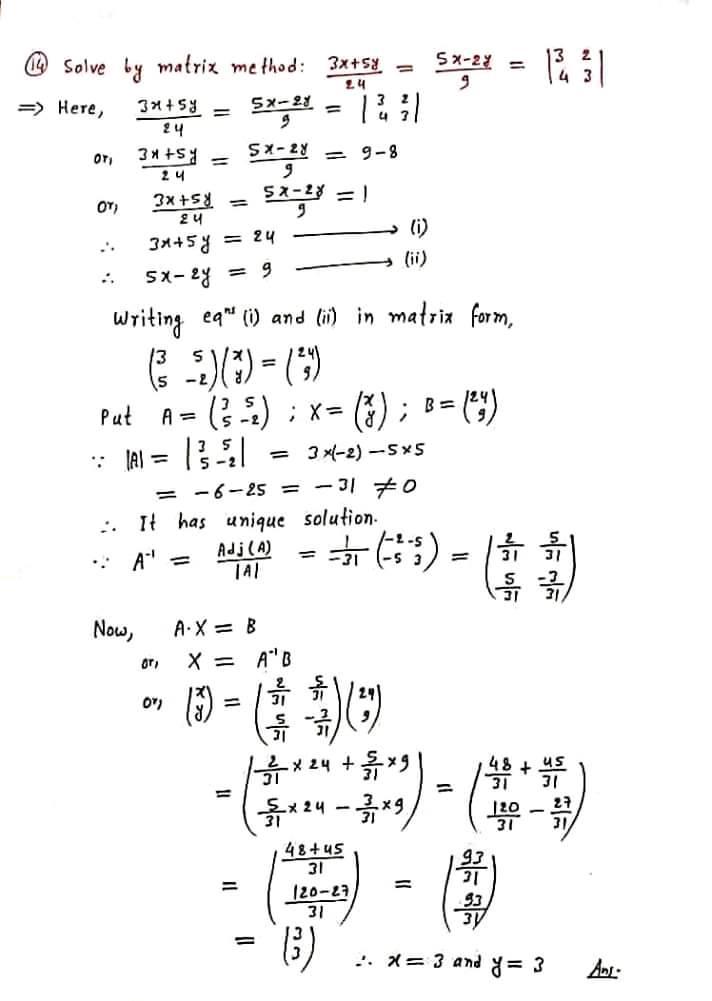 (14) Solve by matrix method: (3x+5y)/24 = (5x-2y)/9 = |3 2; 4 3|
=> Here, (3x+5y)/24 = (5x-2y)/9 = |3 2; 4 3|
or, (3x+5y)/24 = (5x-2y)/9 = 9-8
or, (3x+5y)/24 = (5x-2y)/9 = 1
∴ 3x+5y = 24 ⟶ (i)
∴ 5x-2y = 9 ⟶ (ii)
Writing eqⁿˢ (i) and (ii) in matrix form,
(3 5; 5 -2)(x; y) = (24; 9)
Put A = (3 5; 5 -2) ; X = (x; y) ; B = (24; 9)
∵ |A| = |3 5; 5 -2| = 3×(-2) - 5×5
= -6-25 = -31 ≠ 0
∴ It has unique solution.
∵ A⁻¹ = Adj(A)/|A| = 1/-31 (-2 -5; -5 3) = (2/31 5/31; 5/31 -3/31)
Now, A·X = B
or, X = A⁻¹B
or, (x; y) = (2/31 5/31; 5/31 -3/31)(24; 9)
= (2/31 × 24 + 5/31 × 9; 5/31 × 24 - 3/31 × 9) = (48/31 + 45/31; 120/31 - 27/31)
= ((48+45)/31; (120-27)/31) = (93/31; 93/31)
= (3; 3) ∴ x = 3 and y = 3 Ans.